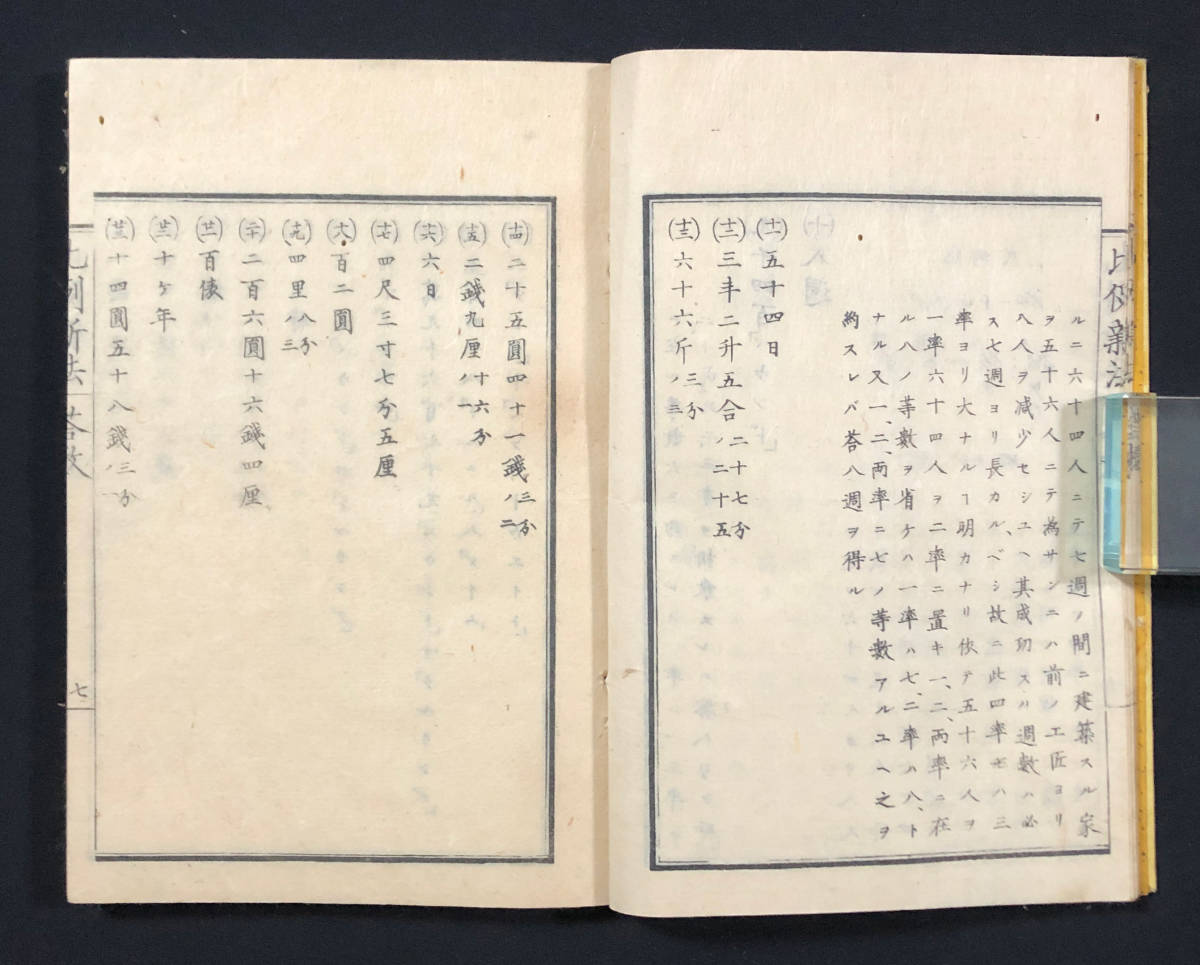 ルニ六十四人ニテ七週ノ間ニ建築スル家
ヲ五十六人ニテ為サンニハ前ノ工匠ヨリ
八人ヲ减少セシユヘ其成功スル週數ハ必
ス七週ヨリ長カルベシ故ニ此四率ハ三
率ヨリ大ナルヿ明カナリ依テ五十六人ヲ
一率六十四人ヲ二率ニ置キ一、二、兩率ニ在
ル八ノ等數ヲ省ケハ一率ハ七、二率ハ八、ト
ナル又一、二、兩率ニ七ノ等數アルユヘ之ヲ
約スレバ荅八週ヲ得ル
(十一)五十四日
(十二)三斗二升五合二十七分ノ二十五
(十三)六十六斤三分ノ三
(十四)二十五圓四十一錢三分ノ二
(十五)二錢九厘十六分ノ一
(十六)六日
(十七)四尺三寸七分五厘
(十八)百二圓
(十九)四里八分ノ三
(二十)二百六圓十六錢四厘
(廿一)百俵
(廿二)十ケ年
(廿三)十四圓五十八錢三分
七